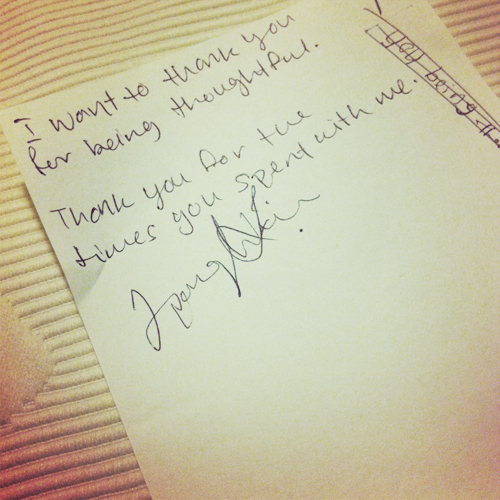 I want to thank you
for being thoughtful.
Thank you for the
times you spend with me.
you being the